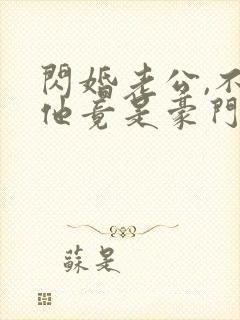 閃婚老公,不
他竟是豪門
蘇是